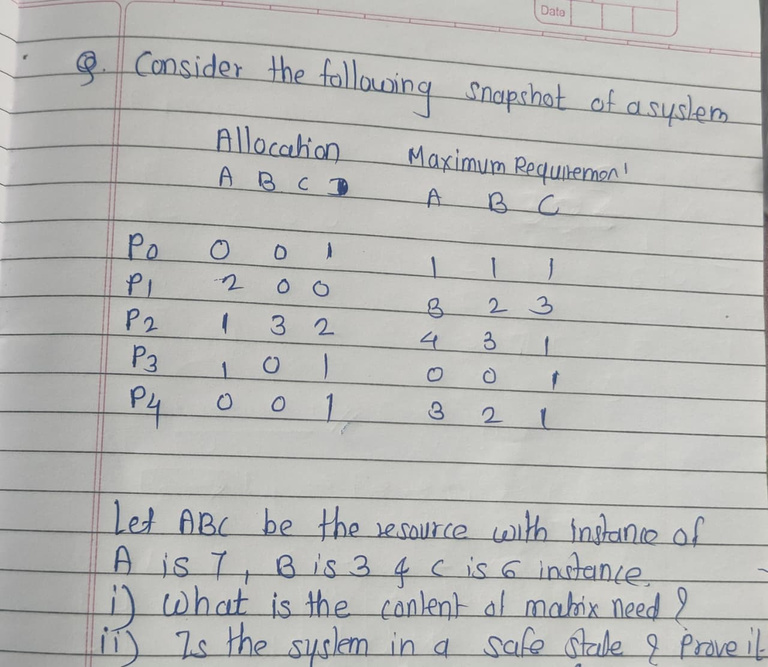 Date
Q. Consider the following snapshot of a system
Allocation Maximum Requirement
A B C A B C
P0 0 0 1 1 1 1
P1 2 0 0 8 2 3
P2 1 3 2 4 3 1
P3 1 0 1 0 0 1
P4 0 0 1 3 2 1
Let ABC be the resource with instance of
A is 7, B is 3 & C is 6 instance.
i) What is the content of matrix need?
ii) Is the system in a safe state? Prove it